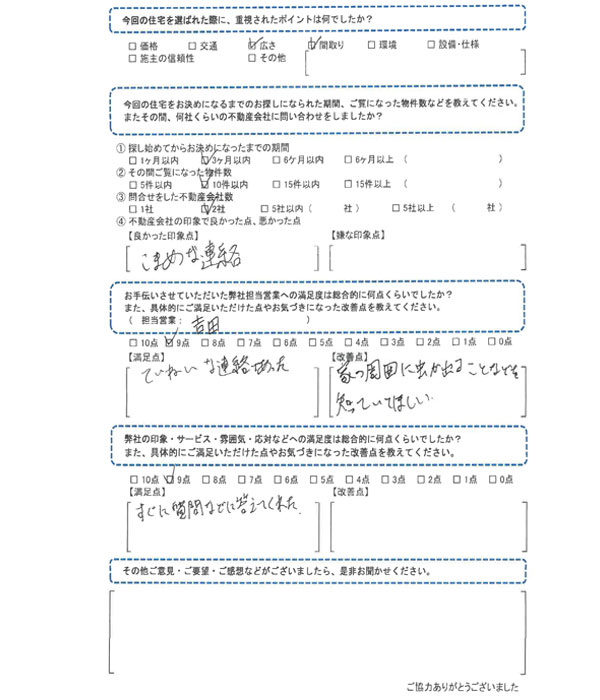 今回の住宅を選ばれた際に、重視されたポイントは何でしたか？
□ 価格 □ 交通 ☑ 広さ ☑ 間取り □ 環境 □ 設備・仕様
□ 施主の信頼性 □ その他
今回の住宅をお決めになるまでのお探しになられた期間、ご覧になった物件数などを教えてください。
またその間、何社くらいの不動産会社に問い合わせをしましたか？
① 探し始めてからお決めになったまでの期間
□ 1ヶ月以内 ☑ 3ヶ月以内 □ 6ケ月以内 □ 6ヶ月以上 （ ）
② その間ご覧になった物件数
□ 5件以内 ☑ 10件以内 □ 15件以内 □ 15件以上 （ ）
③ 問合せをした不動産会社数
□ 1社 ☑ 2社 □ 5社以内（ 社 ） □ 5社以上 （ 社 ）
④ 不動産会社の印象で良かった点、悪かった点
【良かった印象点】 【嫌な印象点】
こまめな連絡
お手伝いさせていただいた弊社担当営業への満足度は総合的に何点くらいでしたか？
また、具体的にご満足いただけた点やお気づきになった改善点を教えてください。
（ 担当営業： 吉田 ）
□ 10点 ☑ 9点 □ 8点 □ 7点 □ 6点 □ 5点 □ 4点 □ 3点 □ 2点 □ 1点 □ 0点
【満足点】 【改善点】
ていねいな連絡 家の周囲に虫が出ることなども
知っていてほしい.
弊社の印象・サービス・雰囲気・応対などへの満足度は総合的に何点くらいでしたか？
また、具体的にご満足いただけた点やお気づきになった改善点を教えてください。
□ 10点 ☑ 9点 □ 8点 □ 7点 □ 6点 □ 5点 □ 4点 □ 3点 □ 2点 □ 1点 □ 0点
【満足点】 【改善点】
すぐに質問などに答えてくれた.
その他ご意見・ご要望・ご感想などがございましたら、是非お聞かせください。
ご協力ありがとうございました